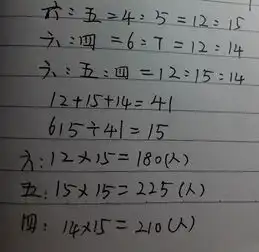 六:五=4:5=12:15
六:四=6:7=12:14
六:五:四=12:15:14
12+15+14=41
615÷41=15
六:12×15=180(人)
五:15×15=225(人)
四:14×15=210(人)